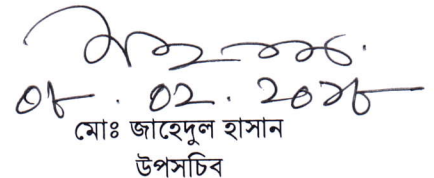 ০৮.০২.২০২৮
মোঃ জাহেদুল হাসান
উপসচিব